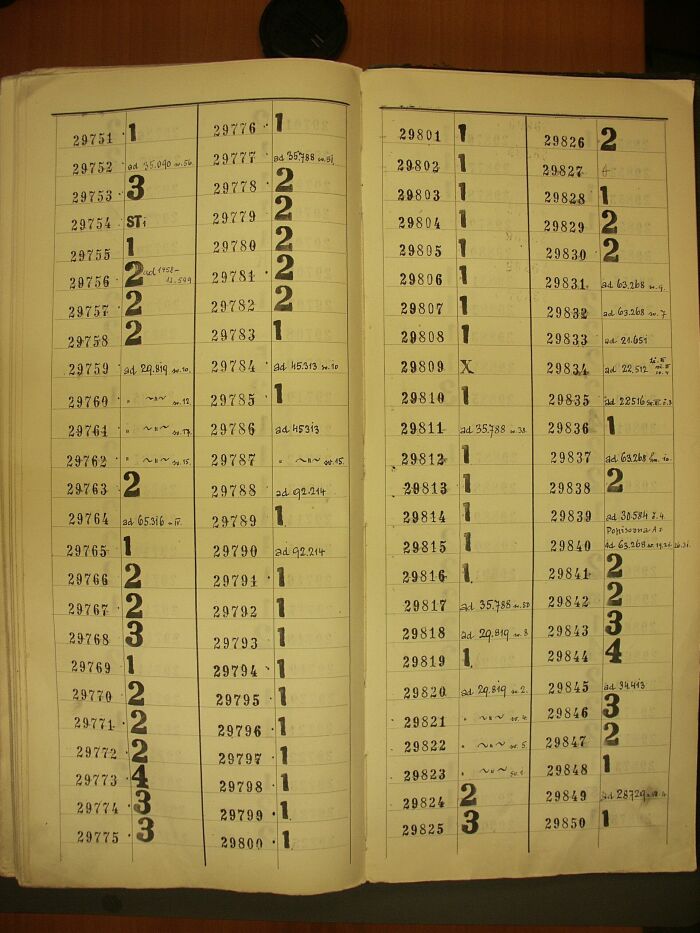 29751 1
29752 ad 35.090 sv.56.
29753 3
29754 STi
29755 1
29756 2 ad 1958-
29757 2
29758 2
29759 ad 29.819 sv.10.
29760 " ~"~ sv.12.
29761 " ~"~ sv.17.
29762 " ~"~ sv.15.
29763 2
29764 ad 65.316
29765 1
29766 2
29767 2
29768 3
29769 1
29770 2
29771 2
29772 2
29773 4
29774 3
29775 3
29776 1
29777 ad 35.788 sv.51.
29778 2
29779 2
29780 2
29781 2
29782 2
29783 1
29784 ad 45.313 sv.10
29785 1
29786 ad 45313
29787 " ~"~ sv.15.
29788 ad 92.214
29789 1
29790 ad 92.214
29791 1
29792 1
29793 1
29794 1
29795 1
29796 1
29797 1
29798 1
29799 1
29800 1
29801 1
29802 1
29803 1
29804 1
29805 1
29806 1
29807 1
29808 1
29809 X
29810 1
29811 ad 35.788 sv.38.
29812 1
29813 1
29814 1
29815 1
29816 1
29817 ad 35.788 sv.50
29818 ad 29.819 sv.8.
29819 1
29820 ad 29.819 sv.2.
29821 " ~"~ sv.4.
29822 " ~"~ sv.5.
29823 " ~"~ sv.1.
29824 2
29825 3
29826 2
29827
29828 1
29829 2
29830 2
29831 ad 63.268 sv.9.
29832 ad 63.268 sv.7.
29833 ad 21.651
29834 ad 22.512
29835 ad 22516
29836 1
29837 ad 63.268
29838 2
29839 ad 30.584 č.4.
29840 ad 63.268
29841 2
29842 2
29843 3
29844 4
29845 ad 34.413
29846 3
29847 2
29848 1
29849 ad 28729
29850 1